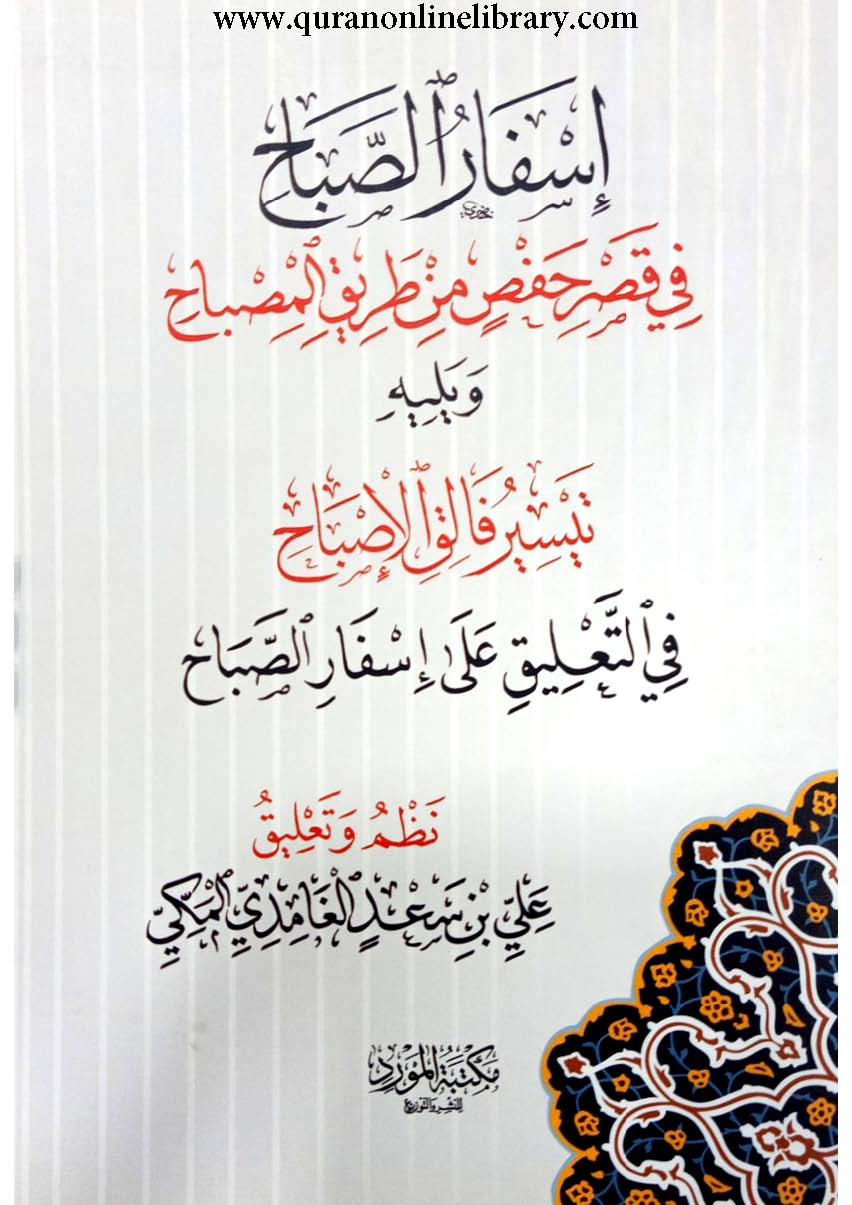 www.quranonlinelibrary.com
إِسْفَارُ ٱلصَّبَاحِ
فِي قَصْرِ حَفْصٍ مِنْ طَرِيقِ ٱلْمِصْبَاحِ
وَيَلِيهِ
تَيْسِيرُ فَالِقِ ٱلْإِصْبَاحِ
فِي ٱلتَّعْلِيقِ عَلَى إِسْفَارِ ٱلصَّبَاحِ
نَظْمُ وَتَعْلِيقُ
عَلِيِّ بْنِ سَعْدٍ ٱلْغَامِدِيِّ ٱلْمَكِّيِّ
مَكْتَبَةُ الْمَوْرِدِ
للنشر والتوزيع